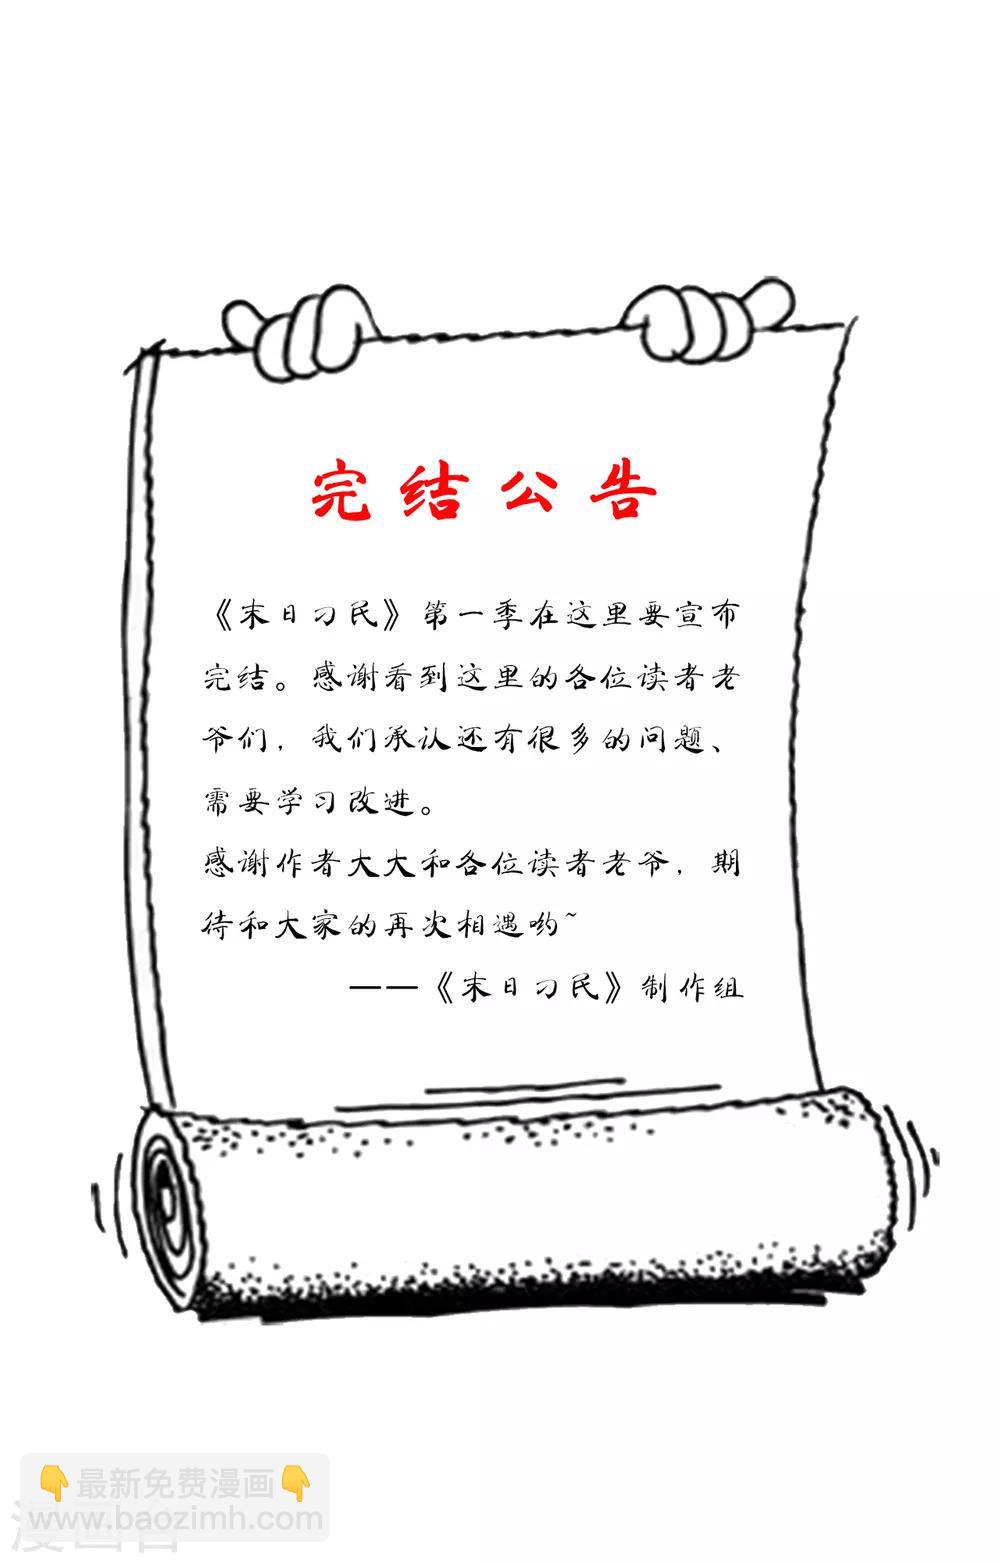 完结公告
《末日刁民》第一季在这里要宣布
完结。感谢看到这里的各位读者老
爷们，我们承认还有很多的问题、
需要学习改进。
感谢作者大大和各位读者老爷，期
待和大家的再次相遇哟~
——《末日刁民》制作组
👇最新免费漫画👇
www.baozimh.com
漫画台